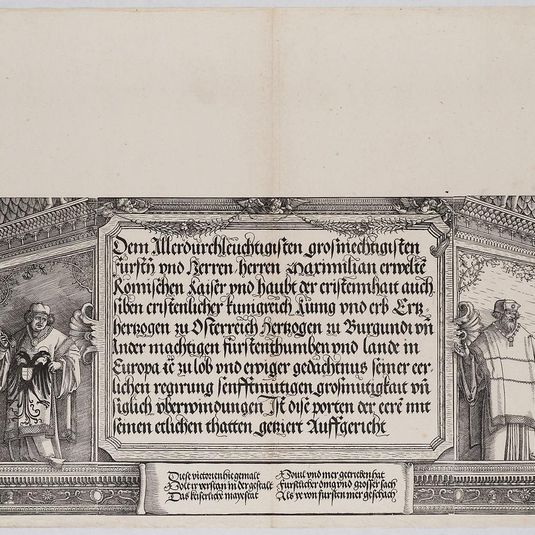 Dem Allerdurchleuchtigisten großmechtigisten
fürstn̄ vnd Herren herren Maximilian erwelten̄
Römischen Kaiser vnd haubt der cristennhait auch
siben cristenlicher künigreich Küng vnd erb Ertz
hertzogen zu Osterreich Hertzogen zu Burgundi vn̄
Ander mächtigen fürstenthumben vnd lande in
Europa ꝛc̄ zu lob vnd ewiger gedächtnus seiner eer
lichen regirung senfftmütigen großmütigkait vn̄
siglich vberwindungen Ist dise porten der eeren̄ mit
seinen etlichen thatten getziert Auffgericht
Diese victorien hie gemalt
Solt ir versteen in der gestalt
Das keiserliche mayestat
Souil vnd mer getrieben hat
Furstlicher ding vnd grosser sach
Als ye von fursten mer geschach